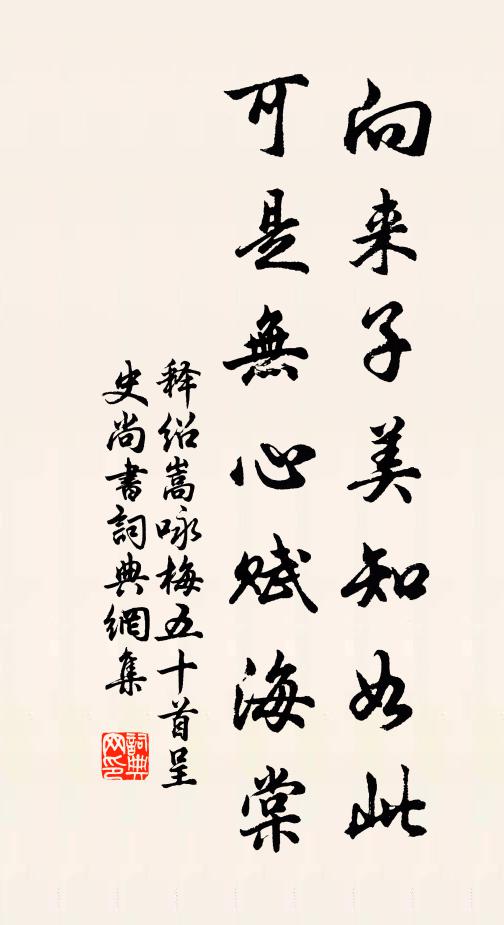 向来子美知如此
可是無心赋海棠
释绍嵩咏梅五十首呈
史尚書詞典網集
詞典网印